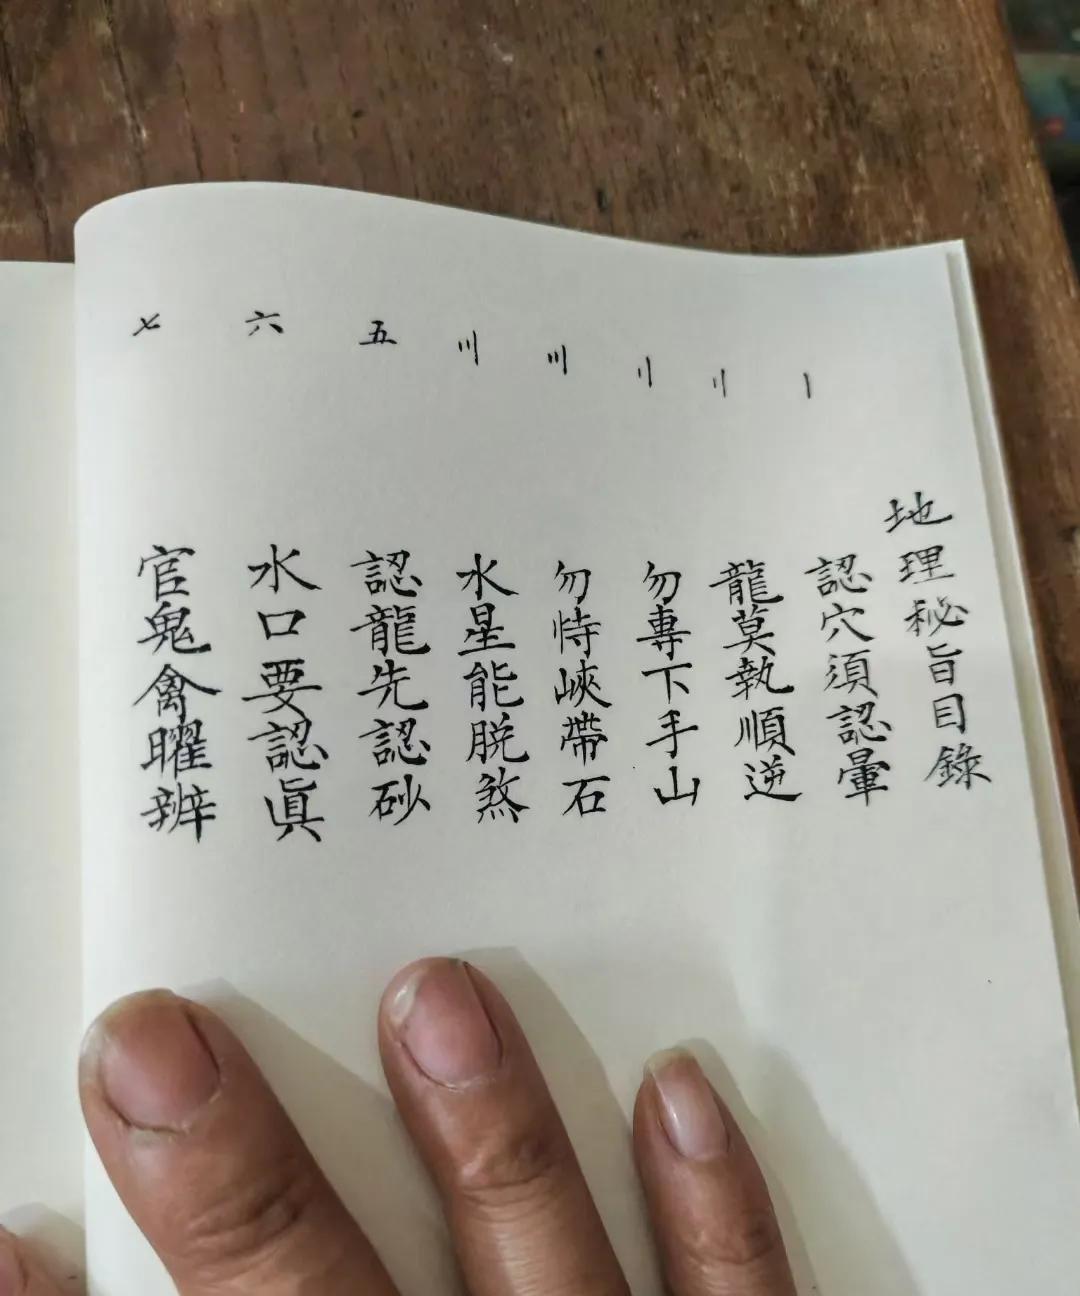 地理秘旨目錄
〡 認穴須認暈
〢 龍莫執順逆
〢 勿專下手山
〣 勿恃峽帶石
〣 水星能脱煞
五 認龍先認砂
六 水口要認眞
七 官鬼禽曜辨